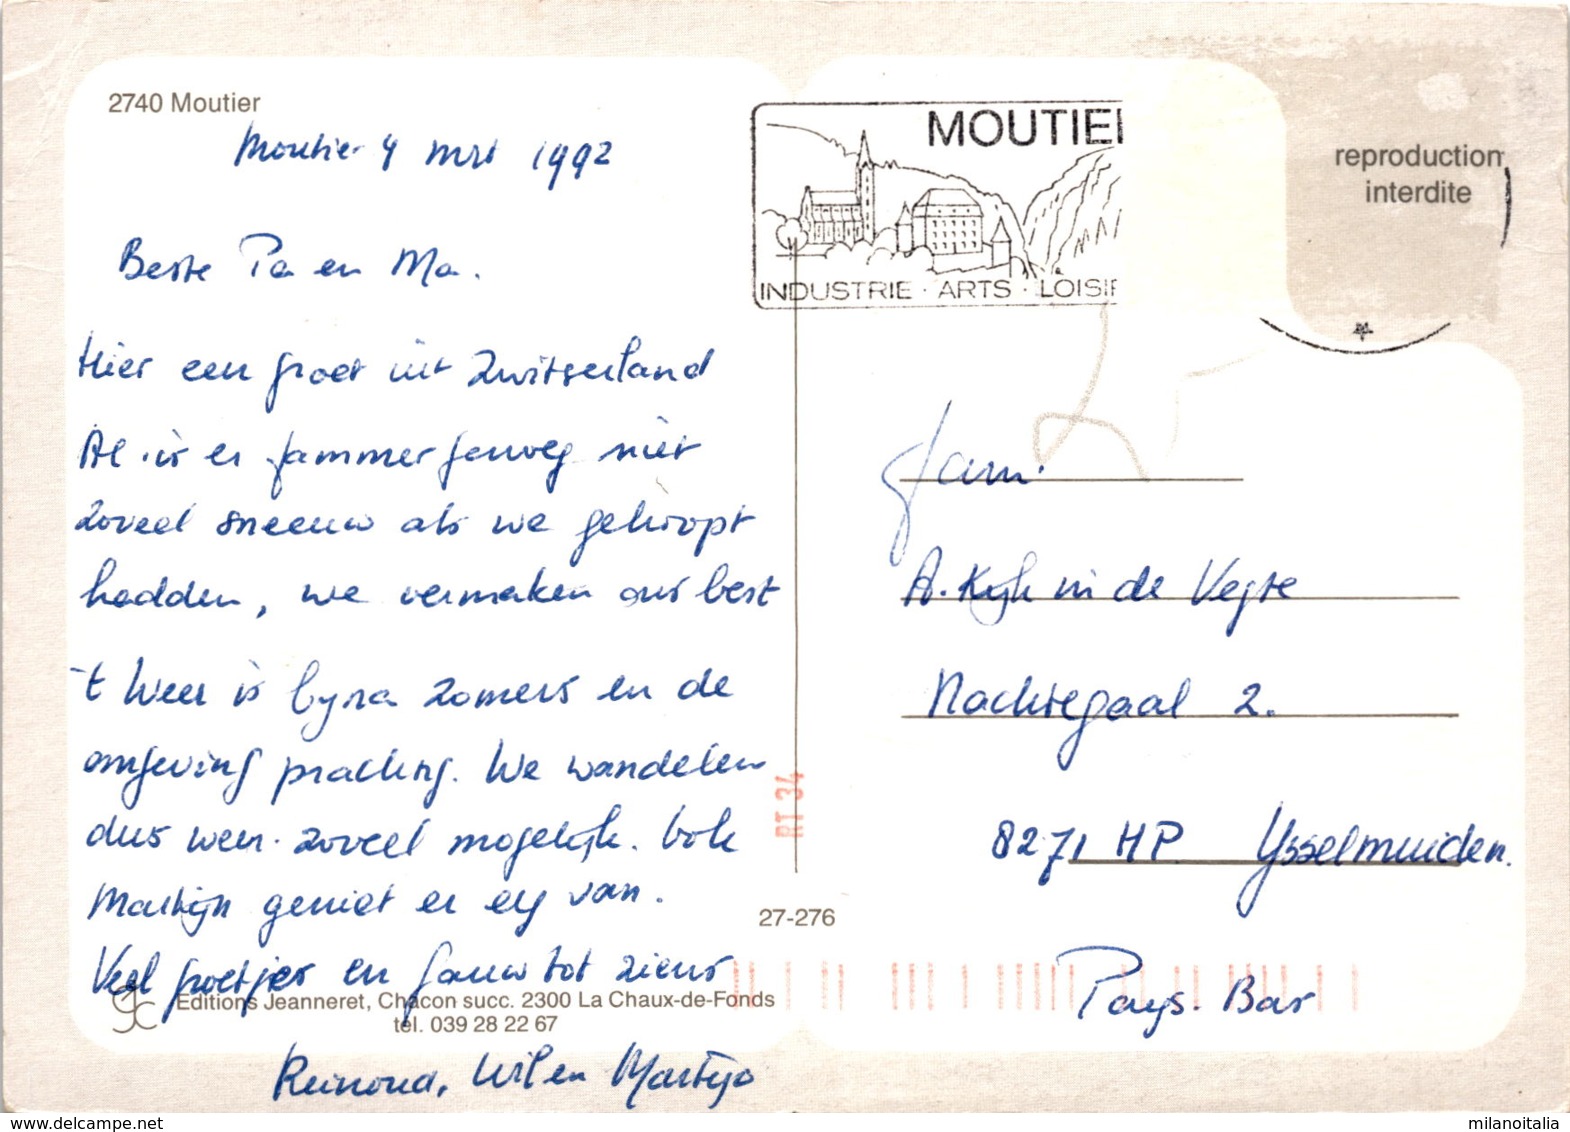 2740 Moutier
Moutier 4 mrt 1992
Beste Pa en Ma.
Hier een groet uit Zwitserland
Al is er jammer genoeg niet
zoveel sneeuw als we gehoopt
hadden, we vermaken ons best
't Weer is byna zomers en de
omgeving prachtig. We wandelen
dus weer zoveel mogelijk. Ook
Martijn geniet er erg van.
Veel groetjes en gauw tot ziens
Editions Jeanneret, Chacon succ. 2300 La Chaux-de-Fonds
tél. 039 28 22 67
Reinoud, Wil en Martijn
MOUTIER
INDUSTRIE · ARTS · LOISIR
reproduction
interdite
Fam.
A. in de Vegte
Nachtegaal 2.
8271 HP IJsselmuiden.
Pays-Bas
RT 34
27-276
www.delcampe.net
milanoitalia